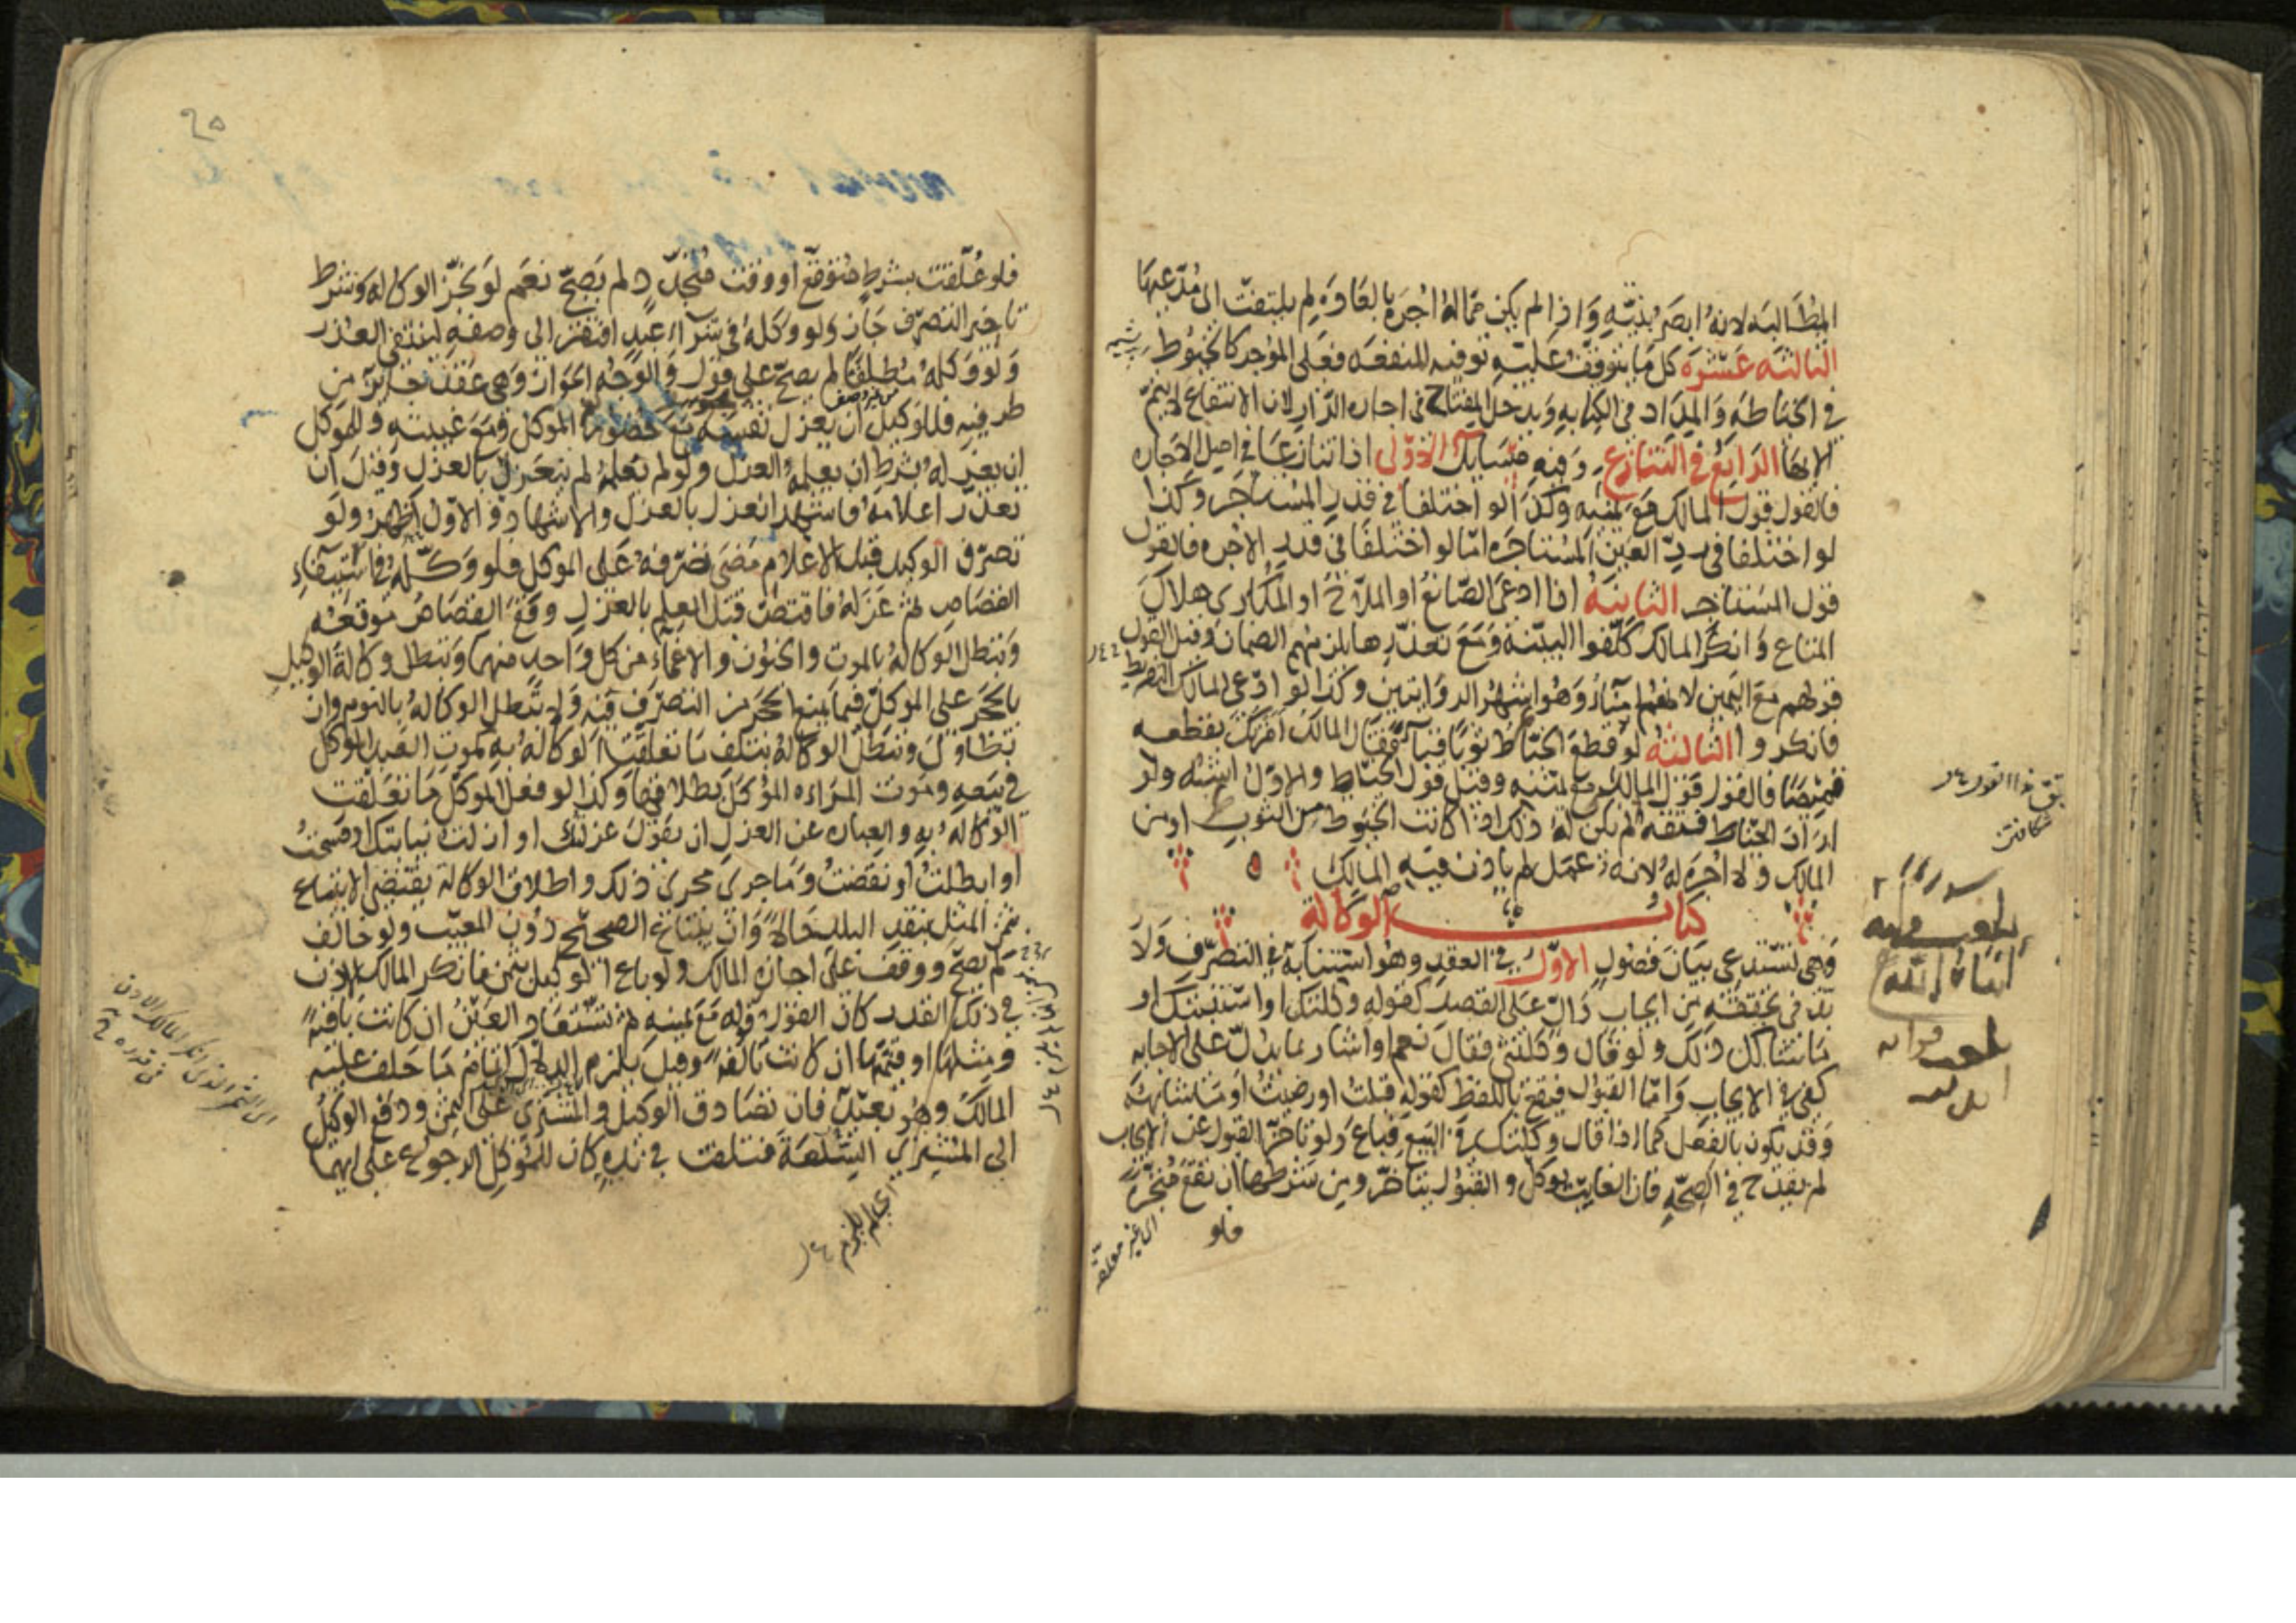 المطالبة لانه ابصر بنيته واذا لم يكن مما له اجرة بالعادة لم يلتفت الى مدعيها
الثالثة عشرة كل ما يتوقف عليه توفية المنفعة فعلى الموجر كالخيوط
في الخياطة والمداد في الكتابة ويدخل المفتاح في اجارة الدار لان الانتفاع لا يتم
الا بها الرابع في التنازع وفيه مسايل الاولى اذا تنازعا في اصل الاجارة
فالقول قول المالك مع يمينه وكذا لو اختلفا في قدر المستاجر وكذا
لو اختلفا في رد العين المستاجرة اما لو اختلفا في قدر الاجرة فالقول
قول المستاجر الثانية اذا ادعى الصانع او الملاح او المكاري هلاك
المتاع وانكر المالك كلفوا البينة ومع تعذرها يلزمهم الضمان وقيل القول
قولهم مع اليمين لانهم امناء وهو اشهر الروايتين وكذا لو ادعى المالك التفريط
فانكروا الثالثة لو قطع الخياط ثوبا قباء فقال المالك امرتك بقطعه
قميصا فالقول قول المالك مع يمينه وقيل قول الخياط والاول اشبه ولو
اراد الخياط فتقه لم يكن له ذلك اذا كانت الخيوط من الثوب او من
المالك ولا اجرة له لانه عمل لم ياذن فيه المالك
كتاب الوكالة
وهي تستدعي بيان فصول الاول في العقد وهو استنابة في التصرف ولا
بد في تحققه من ايجاب دال على القصد كقوله وكلتك او استنبتك او
ما شاكل ذلك ولو قال وكلتني فقال نعم او اشار بما يدل على الاجابة
كفى في الايجاب واما القبول فيقع باللفظ كقوله قبلت او رضيت او ما شابهه
وقد يكون بالفعل كما اذا قال وكلتك في البيع فباع ولو تاخر القبول عن الايجاب
لم يقدح في الصحة فان الغايب يوكل والقبول يتاخر ومن شرطها ان تقع منجزة
فلو
اي غير معلقة
٢٥
فلو علقت بشرط متوقع او وقت متجدد لم يصح نعم لو نجز الوكالة وشرط
تاخير التصرف جاز ولو وكله في شراء عبد افتقر الى وصفه لينتفي الغرر
ولو وكله مطلقا لم يصح على قول والوجه الجواز وهي عقد جايز من
طرفيه فللوكيل ان يعزل نفسه مع حضور الموكل ومع غيبته وللموكل
ان يعزله بشرط ان يعلمه العزل ولو لم يعلمه لم ينعزل بالعزل وقيل ان
تعذر اعلامه فاشهد انعزل بالعزل والاشهاد والاول اظهر ولو
تصرف الوكيل قبل الاعلام مضى تصرفه على الموكل فلو وكله في استيفاء
القصاص ثم عزله فاقتص قبل العلم بالعزل وقع القصاص موقعه
وتبطل الوكالة بالموت والجنون والاغماء من كل واحد منهما وتبطل وكالة الوكيل
بالحجر على الموكل فيما يمنع الحجر من التصرف فيه ولا تبطل الوكالة بالنوم وان
تطاول وتبطل الوكالة بتلف ما تعلقت الوكالة به كموت العبد الموكل
في بيعه وموت المراة الموكل بطلاقها وكذا لو فعل الموكل ما تعلقت
الوكالة به والعبارة عن العزل ان يقول عزلتك او ازلت نيابتك او فسخت
او ابطلت او نقضت وما جرى مجرى ذلك واطلاق الوكالة يقتضي الابتياع
بثمن المثل بنقد البلد حالا وان يبتاع الصحيح دون المعيب ولو خالف
لم يصح ووقف على اجازة المالك ولو باع الوكيل بثمن فانكر المالك الاذن
في ذلك القدر كان القول قوله مع يمينه ثم تستعاد العين ان كانت باقية
ومثلها او قيمتها ان كانت تالفة وقيل يلزم الدلال اتمام ما حلف عليه
المالك وهو بعيد فان تصادق الوكيل والمشتري على الثمن ودفع الوكيل
الى المشتري السلعة فتلفت في يده كان للموكل الرجوع على ايهما